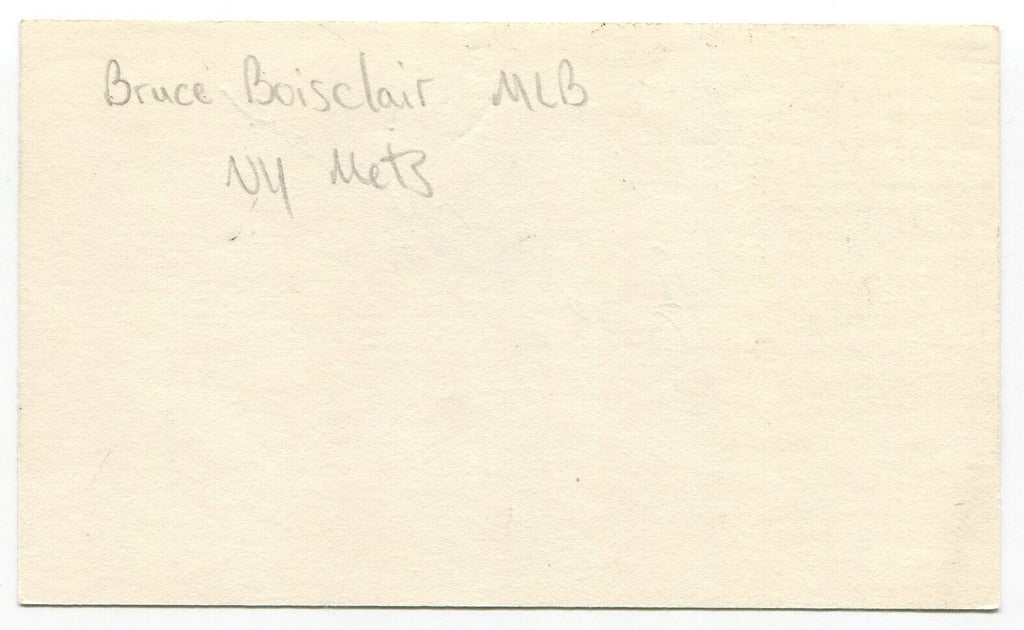 Bruce Boisclair MLB
NY Mets